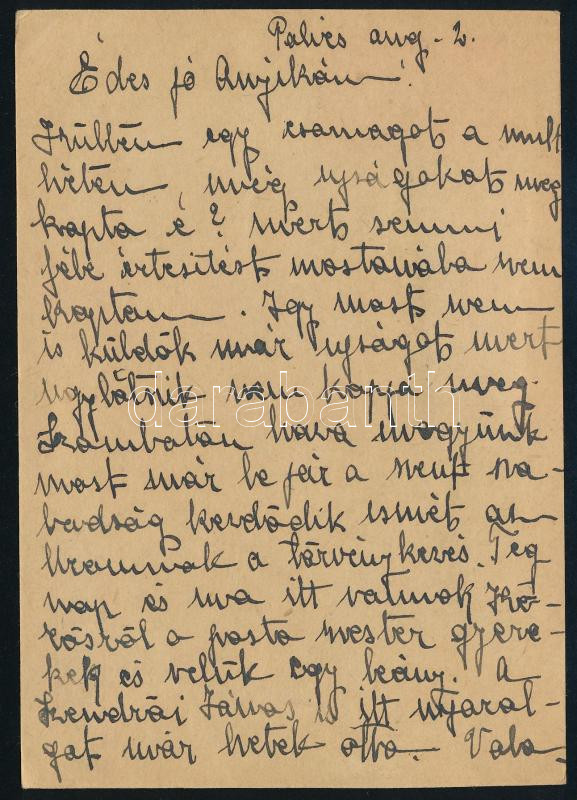 Palics aug. 2.
Édes jó Anyikám!
Küldtem egy csomagot a mult
héten, meg ujságokat meg
kapta é? Mert semmi
féle értesitést mostanába nem
kaptam. Igy most nem
is küldök már ujságot mert
ugylátszik nem kapja meg.
darabanth
Szombatan haza megyünk
most már le jár a szent sza-
badság kezdödik ismét az
Uramnak a törvénykezés. Teg
nap és ma itt vannak Kö-
rösről a posta mester gyere-
kek és velük egy leány. A
Szendrái János is itt nyaral-
gat már hetek otta. Vala-